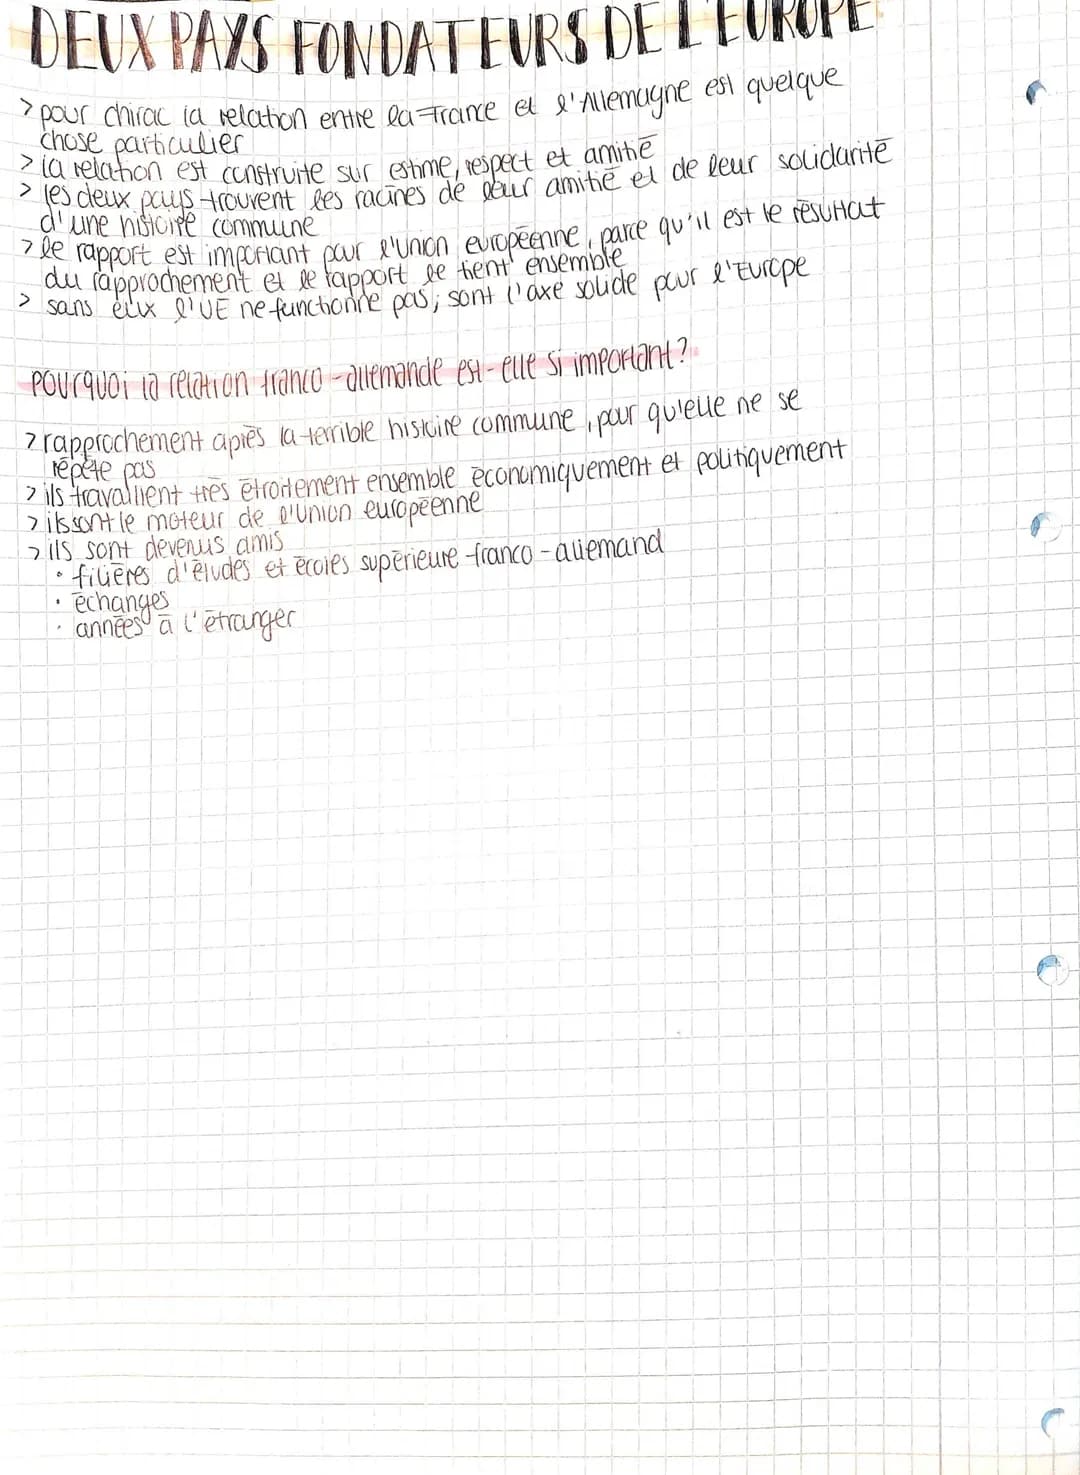 DEUX PAYS FONDATEURS DE L'EUROPE
> pour chirac la relation entre la France et l'Allemagne est quelque
chose particulier
> la relation est construite sur estime, respect et amitié
> les deux pays trouvent les racines de leur amitié et de leur solidarité
d'une histoire commune
> le rapport est important pour l'Union européenne, parce qu'il est le résultat
du rapprochement et le rapport le tient ensemble
> sans eux l'UE ne functionne pas; sont l'axe solide pour l'Europe
pourquoi la relation franco-allemande est-elle si important?
> rapprochement après la terrible histoire commune, pour qu'elle ne se
répète pas
> ils travaillent très étroitement ensemble économiquement et politiquement
> ils sont le moteur de l'Union européenne
> ils sont devenus amis
• filières d'études et écoles supérieure franco-allemand
• échanges
• années à l'étranger